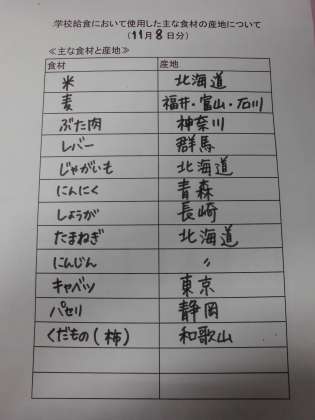 学校給食において使用した主な食材の産地について
(11月8日分)
≪主な食材と産地≫
食材 産地
米 北海道
麦 福井・富山・石川
ぶた肉 神奈川
レバー 群馬
じゃがいも 北海道
にんにく 青森
しょうが 長崎
たまねぎ 北海道
にんじん 〃
キャベツ 東京
パセリ 静岡
くだもの(柿) 和歌山